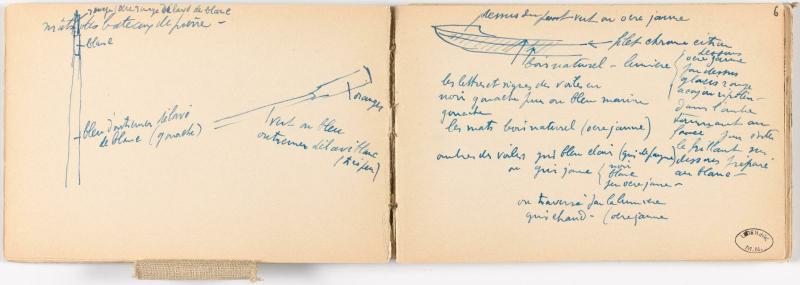 rouge ocre rouge délavé de blanc
mâts des bateaux de
blanc
bleu d'outremer délavé
de blanc (gouache)
oranger
vert ou bleu
outremer délavé blanc
6
dessus du pont vert ou ocre jaune
filet chrome citron
bois naturel - lumière
dessous
ocre jaune
par dessus
glacis rouge
acajou
les lettres et signes des voiles en
noir gouache pur ou bleu marine
gouache
les mats bois naturel (ocre jaune)
dans l'ombre
tournant au
le brillant sur
dessous préparé
au blanc -
ombres des voiles gris bleu clair (gris de payne)
ou gris jaune
noir
blanc
ocre jaune -
ou traversé par la lumière
gris chaud - (ocre jaune